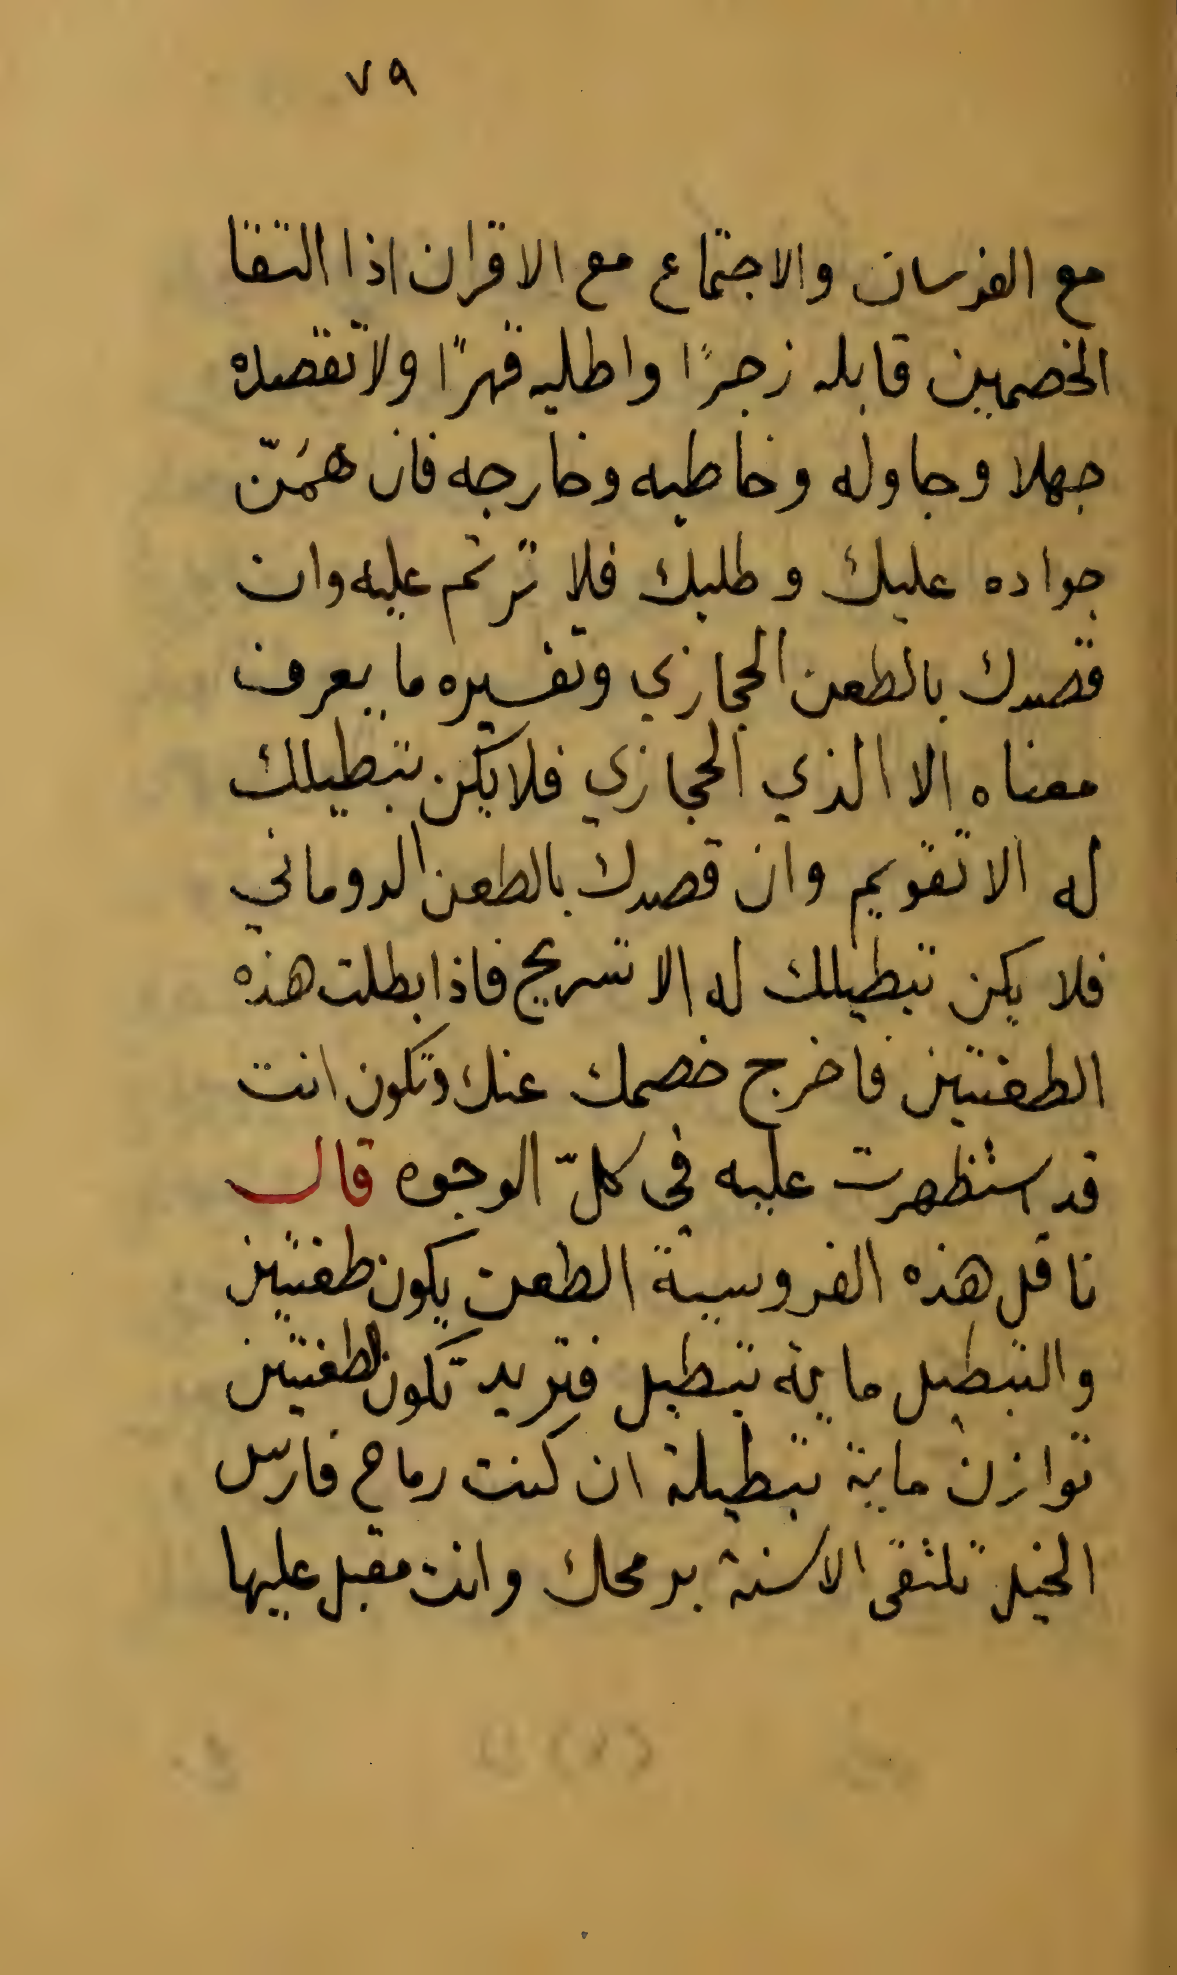 ٧٩
مع الفرسان والاجتماع مع الاقران اذا التقا
الخصمين قابله زجرًا واطلبه قهرًا ولا تقصده
جهلا وجاوله وخاطبه وخارجه فان همّن
جواده عليك وطلبك فلا ترتم عليه وان
قصدك بالطعن الحجازي وتفسيره ما يعرف
معناه الا الذي الحجازي فلا يكن تبطيلك
له الا تقويم وان قصدك بالطعن الروماني
فلا يكن تبطيلك له الا تسريح فاذا بطلت هذه
الطعنتين فاخرج خصمك عنك وتكون انت
قد استظهرت عليه في كلّ الوجوه قال
ناقل هذه الفروسية الطعن يكون طعنتين
والتبطيل ماية تبطيل فتريد تكون الطعنتين
توازن ماية تبطيلة ان كنت رماح فارس
الخيل تلتقى الاسنة برمحك وانت مقبل عليها